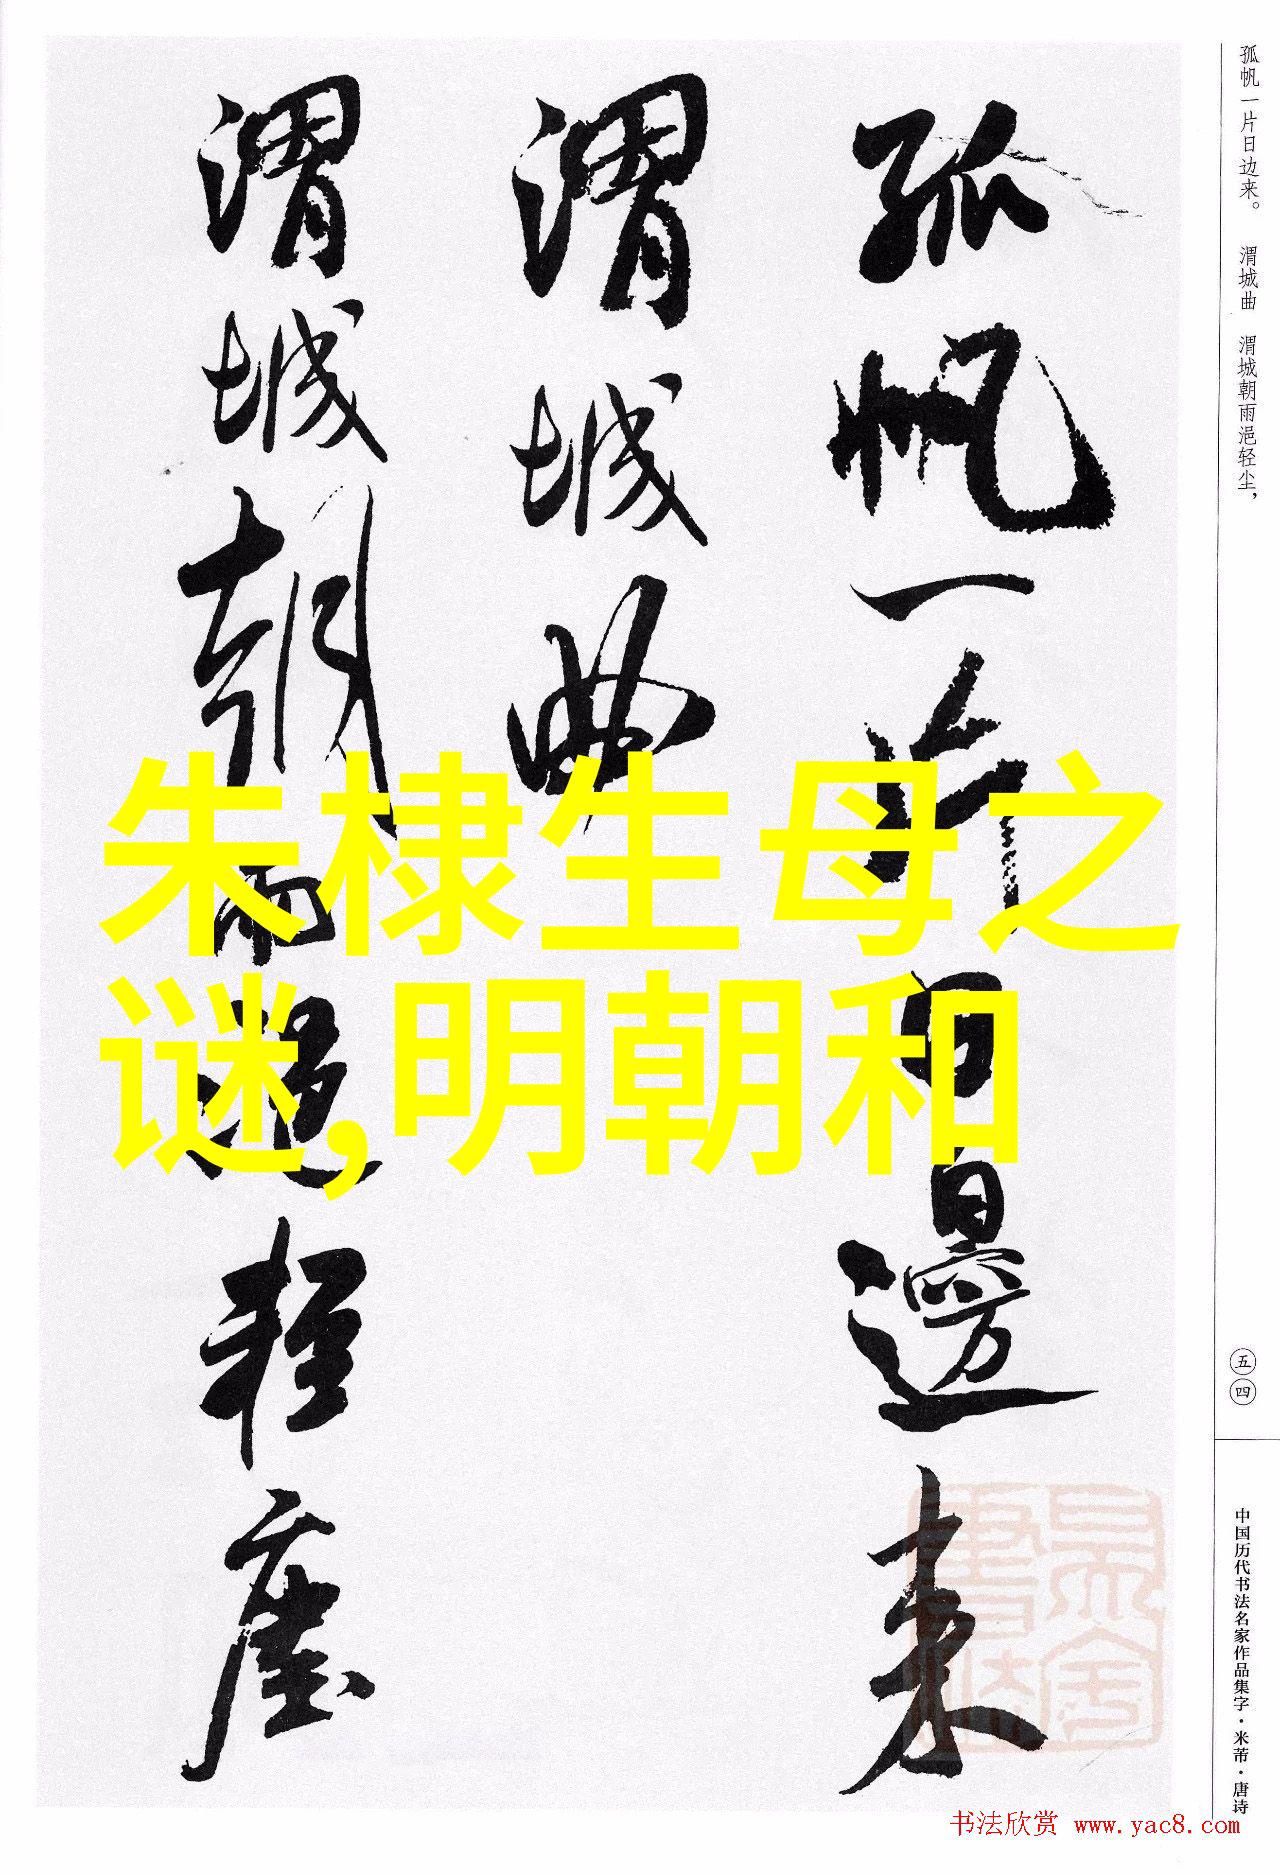 孤帆一片日邊来
渭城曲
渭城朝雨浥輕塵
朱棣生母之
谜,明朝和
孤帆一片日边来。 渭城曲 渭城朝雨浥轻尘,
五四
中国历代书法名家作品集字·米芾·唐诗
书法欣赏 www.yac8.com